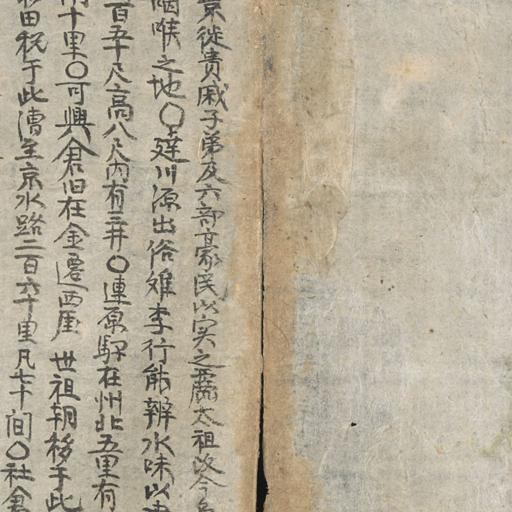 京徙貴戚子弟及六部豪民以实之麗太祖改今
咽喉之地〇達川源出俗離李行能辨水味以
百五十尺高八尺内有三井〇連原駅在州北五里有
十里〇可興倉旧在金遷西厓 世祖朝移于此
田税于此漕至京水路二百六十里凡七十間〇社倉